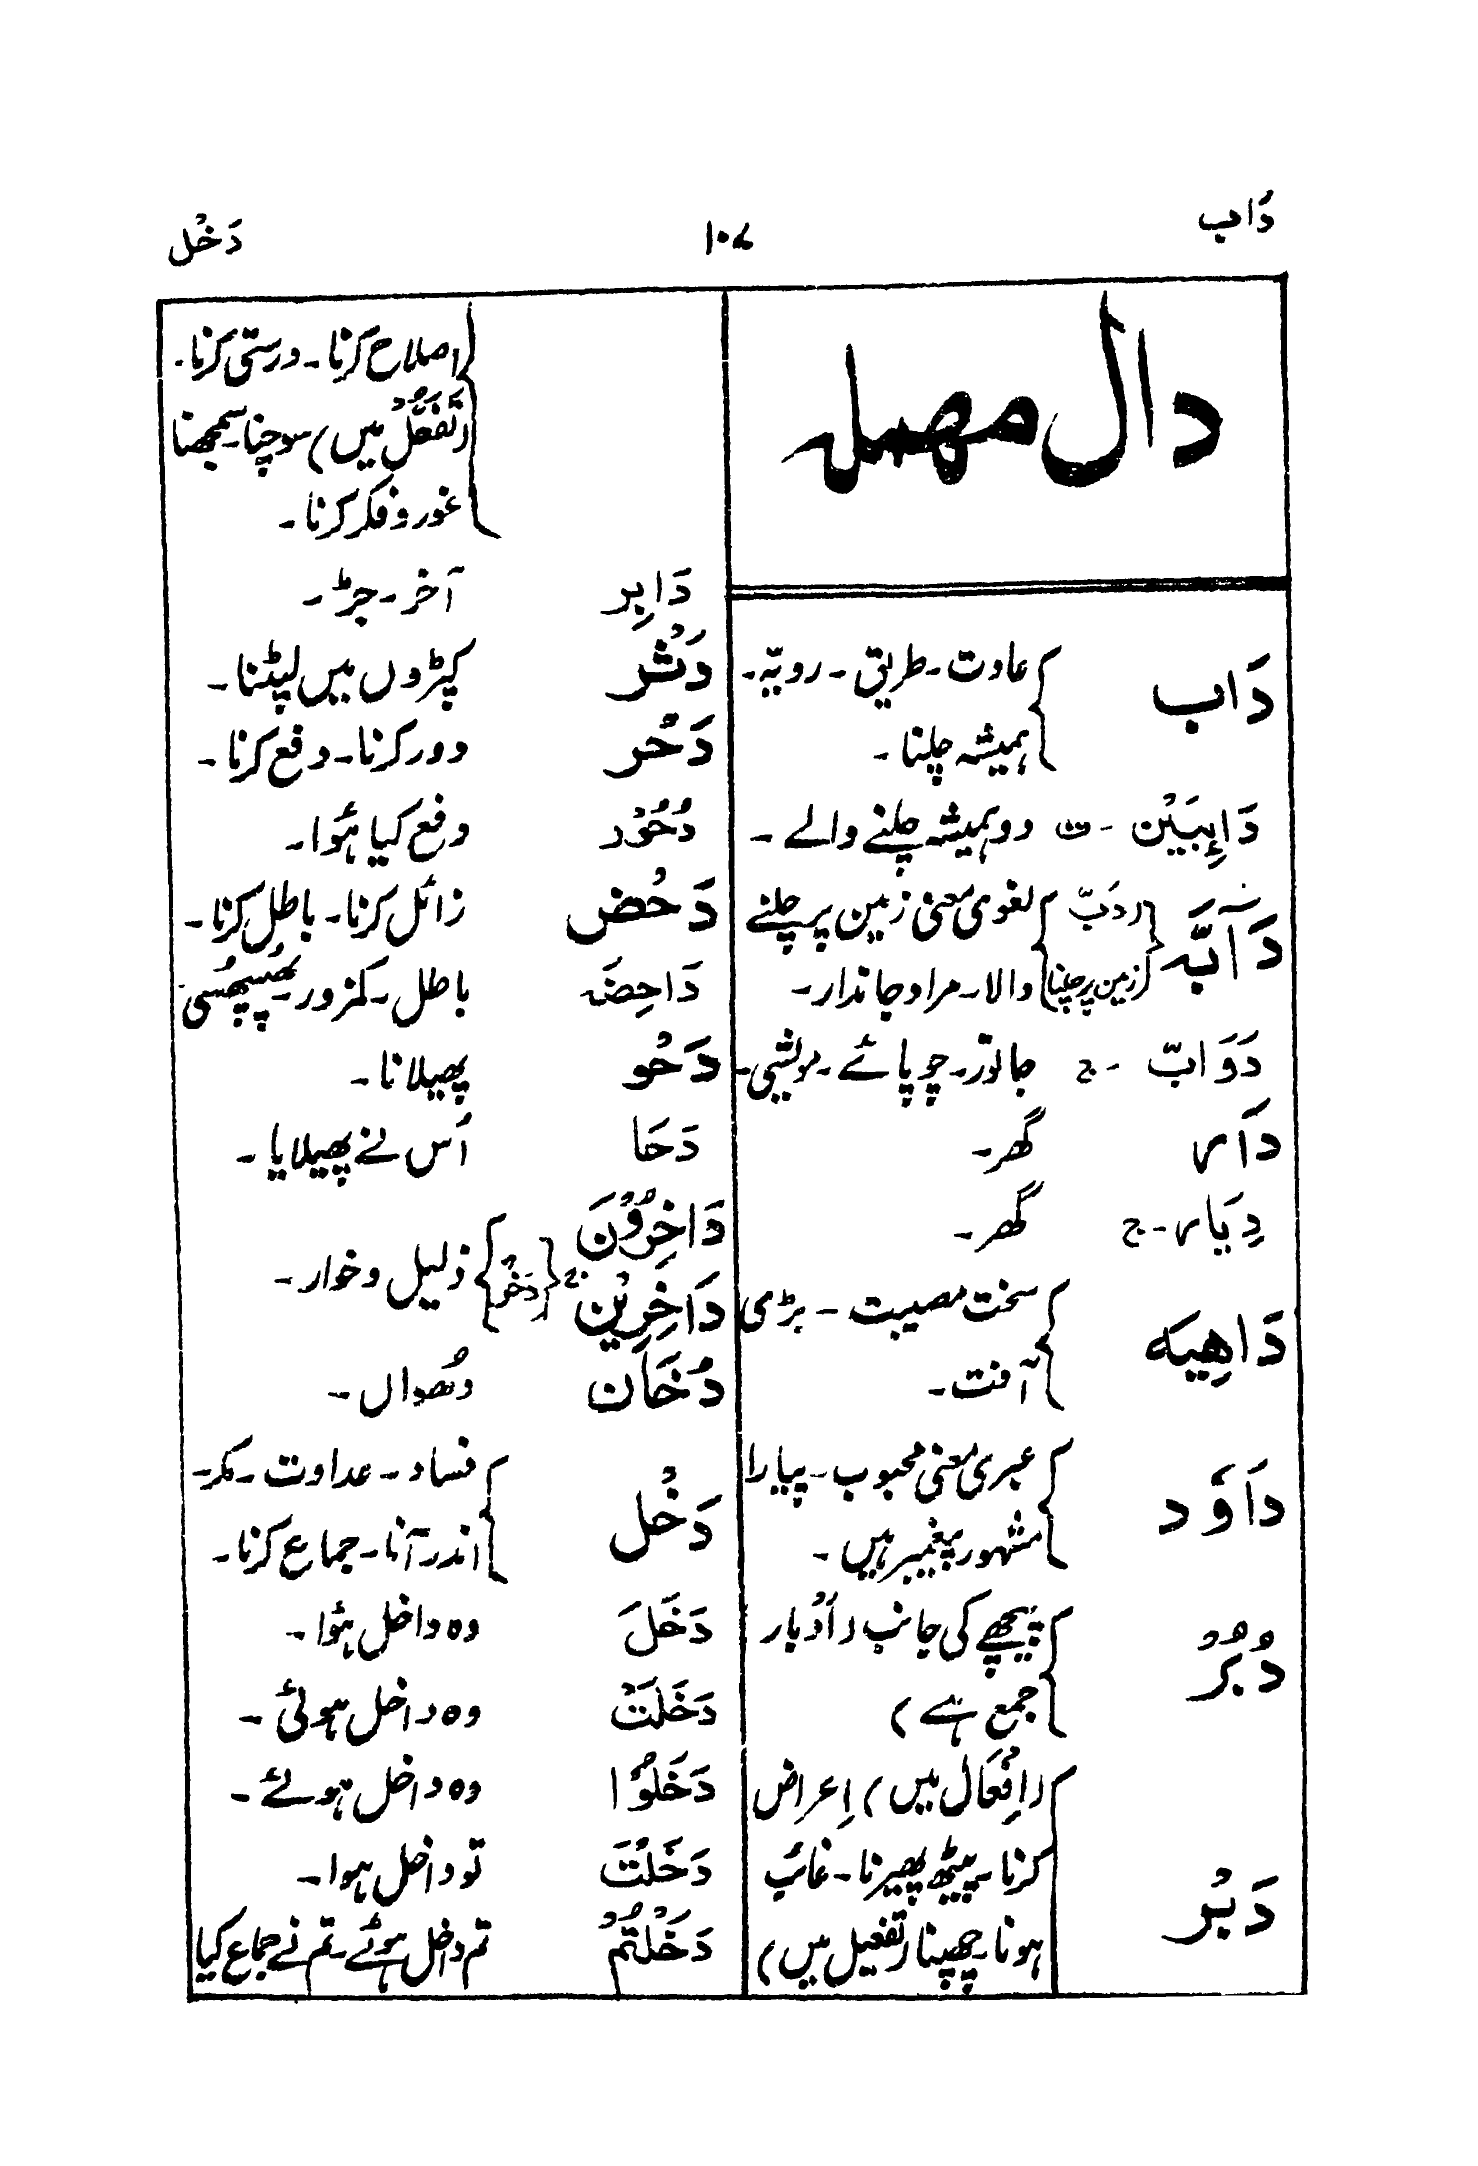 دَاب
۱۰۷
دَخْل
دال مهمله
دَاب عادت۔ طریق۔ رویّہ۔
ہمیشہ چلنا۔
دَاىِٕبَیْن۔ ث دو ہمیشہ چلنے والے۔
دَآبَّہ (دَبّ لغوی معنی زمین پر چلنے
زمین پر چلنا) والا۔ مراد جاندار۔
دَوَابّ۔ ج جانور۔ چوپائے۔ مویشی۔
دَار گھر۔
دِیَار۔ ج گھر۔
دَاهِیَه سخت مصیبت۔ بڑی
آفت۔
دَاوٗد عبری معنی محبوب۔ پیارا
مشہور پیغمبر ہیں۔
دُبُرٌ پیچھے کی جانب (اَدْبار
جمع ہے)
دَبْر (اِفْعَال میں) اِعراض
کرنا۔ پیٹھ پھیرنا۔ غائب
ہونا۔ چھپنا (تفعیل میں)
اصلاح کرنا۔ درستی کرنا۔
(تَفَعُّل میں) سوچنا۔ سمجھنا
غور و فکر کرنا۔
دَابِر آخر۔ جڑ۔
دَثْر کپڑوں میں لپٹنا۔
دَحْر دور کرنا۔ دفع کرنا۔
دُحُوْر دفع کیا ہُوا۔
دَحْض زائل کرنا۔ باطل کرنا۔
دَاحِضَہ باطل۔ کمزور۔ پھسپھسی
دَحْو پھیلانا۔
دَحَا اُس نے پھیلایا۔
دَاخِرُوْنَ
دَاخِرِیْن ج (دَخْر) ذلیل و خوار۔
دُخَان دُھواں۔
دَخْل فساد۔ عداوت۔ مکر۔
اندر آنا۔ جماع کرنا۔
دَخَلَ وہ داخل ہُوا۔
دَخَلَتْ وہ داخل ہوئی۔
دَخَلُوْا وہ داخل ہوئے۔
دَخَلْتَ تو داخل ہوا۔
دَخَلْتُمْ تم داخل ہوئے۔ تم نے جماع کیا